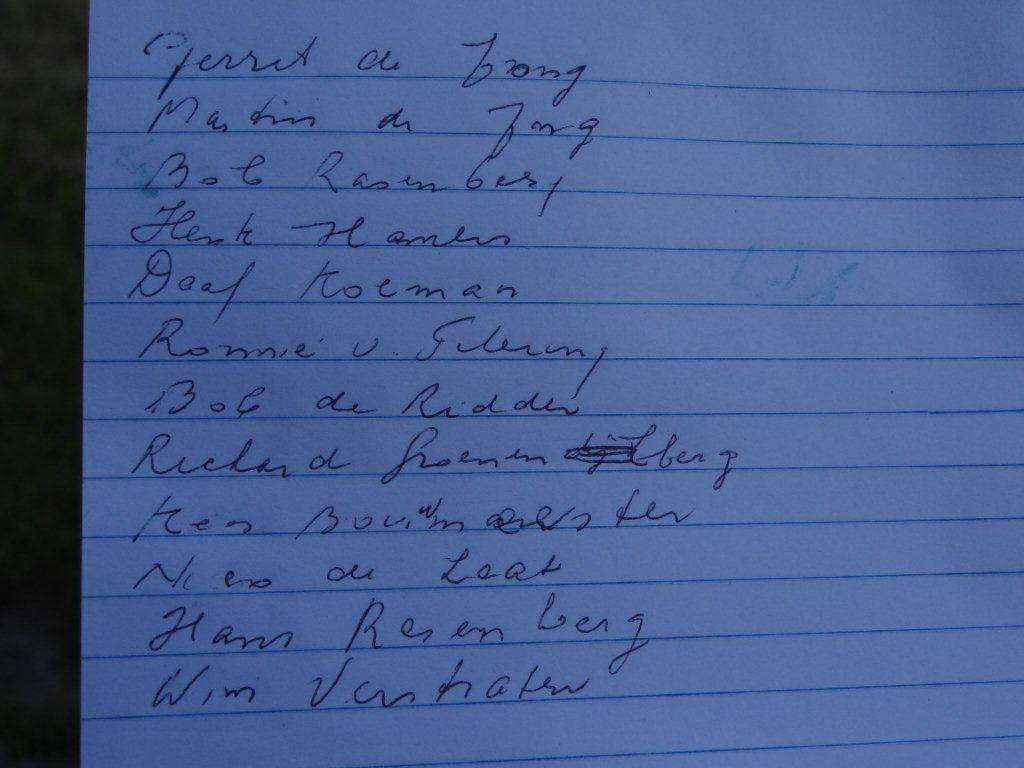 Gerrit de Jong
Martin de Jong
Bob Rasenberg
Henk
Daaf Koeman
Ronnie v.
Bob de Ridder
Richard Groenenberg
Kees Bouwmeester
Nico de Laat
Hans Rasenberg
Wim Verstraten